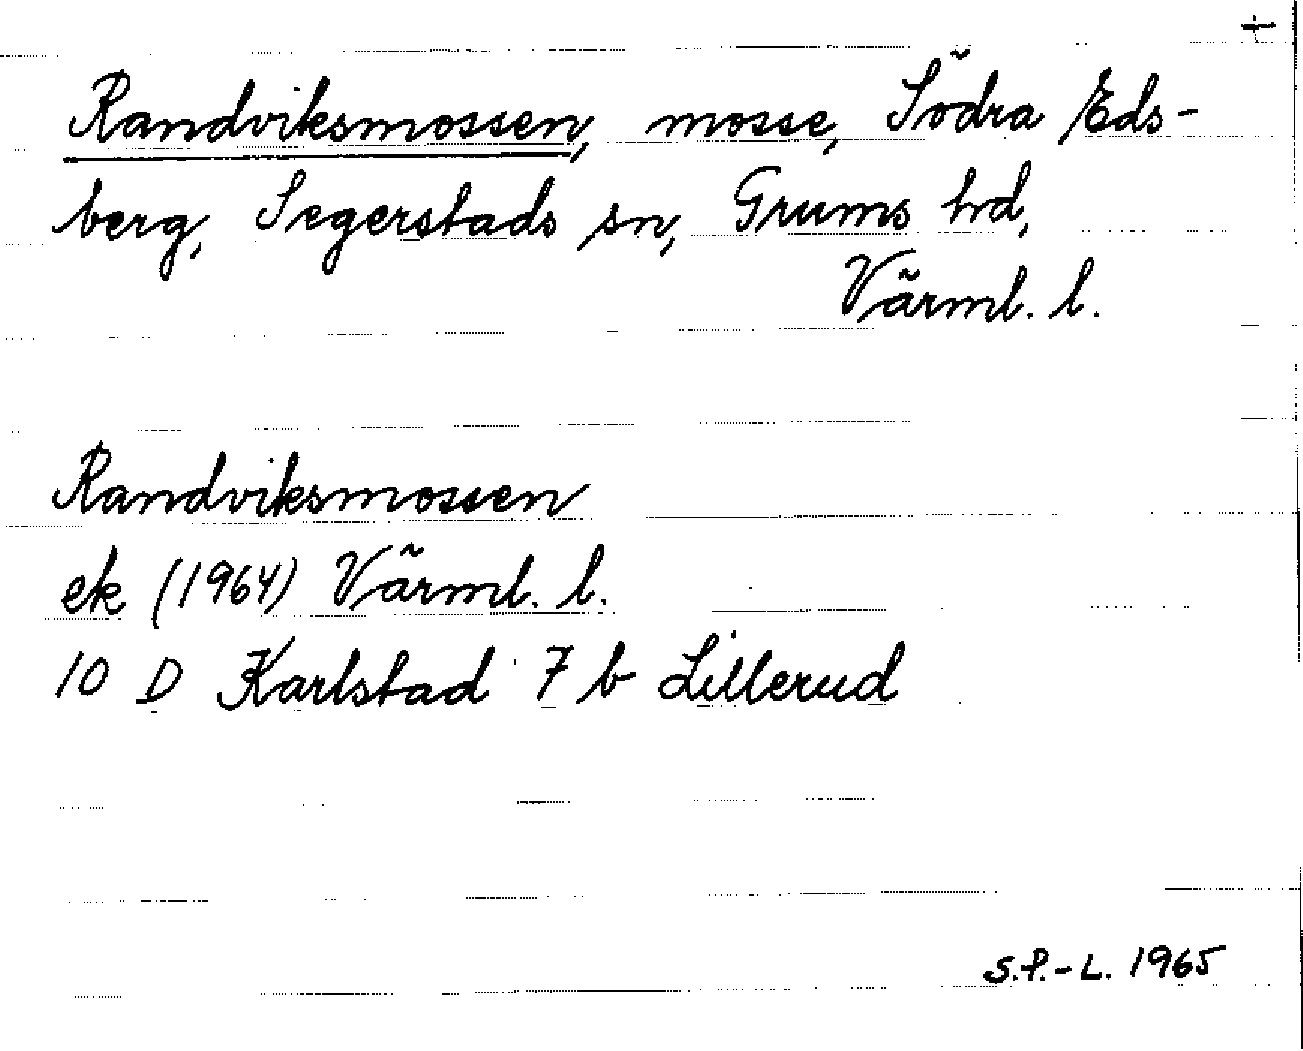 +
Randviksmossen, mosse, Södra Eds-
berg, Segerstads sn, Grums hd,
Värml. l.
Randviksmossen
ek (1964) Värml. l.
10 D Karlstad 7 b Lillerud
S.P.-L. 1965